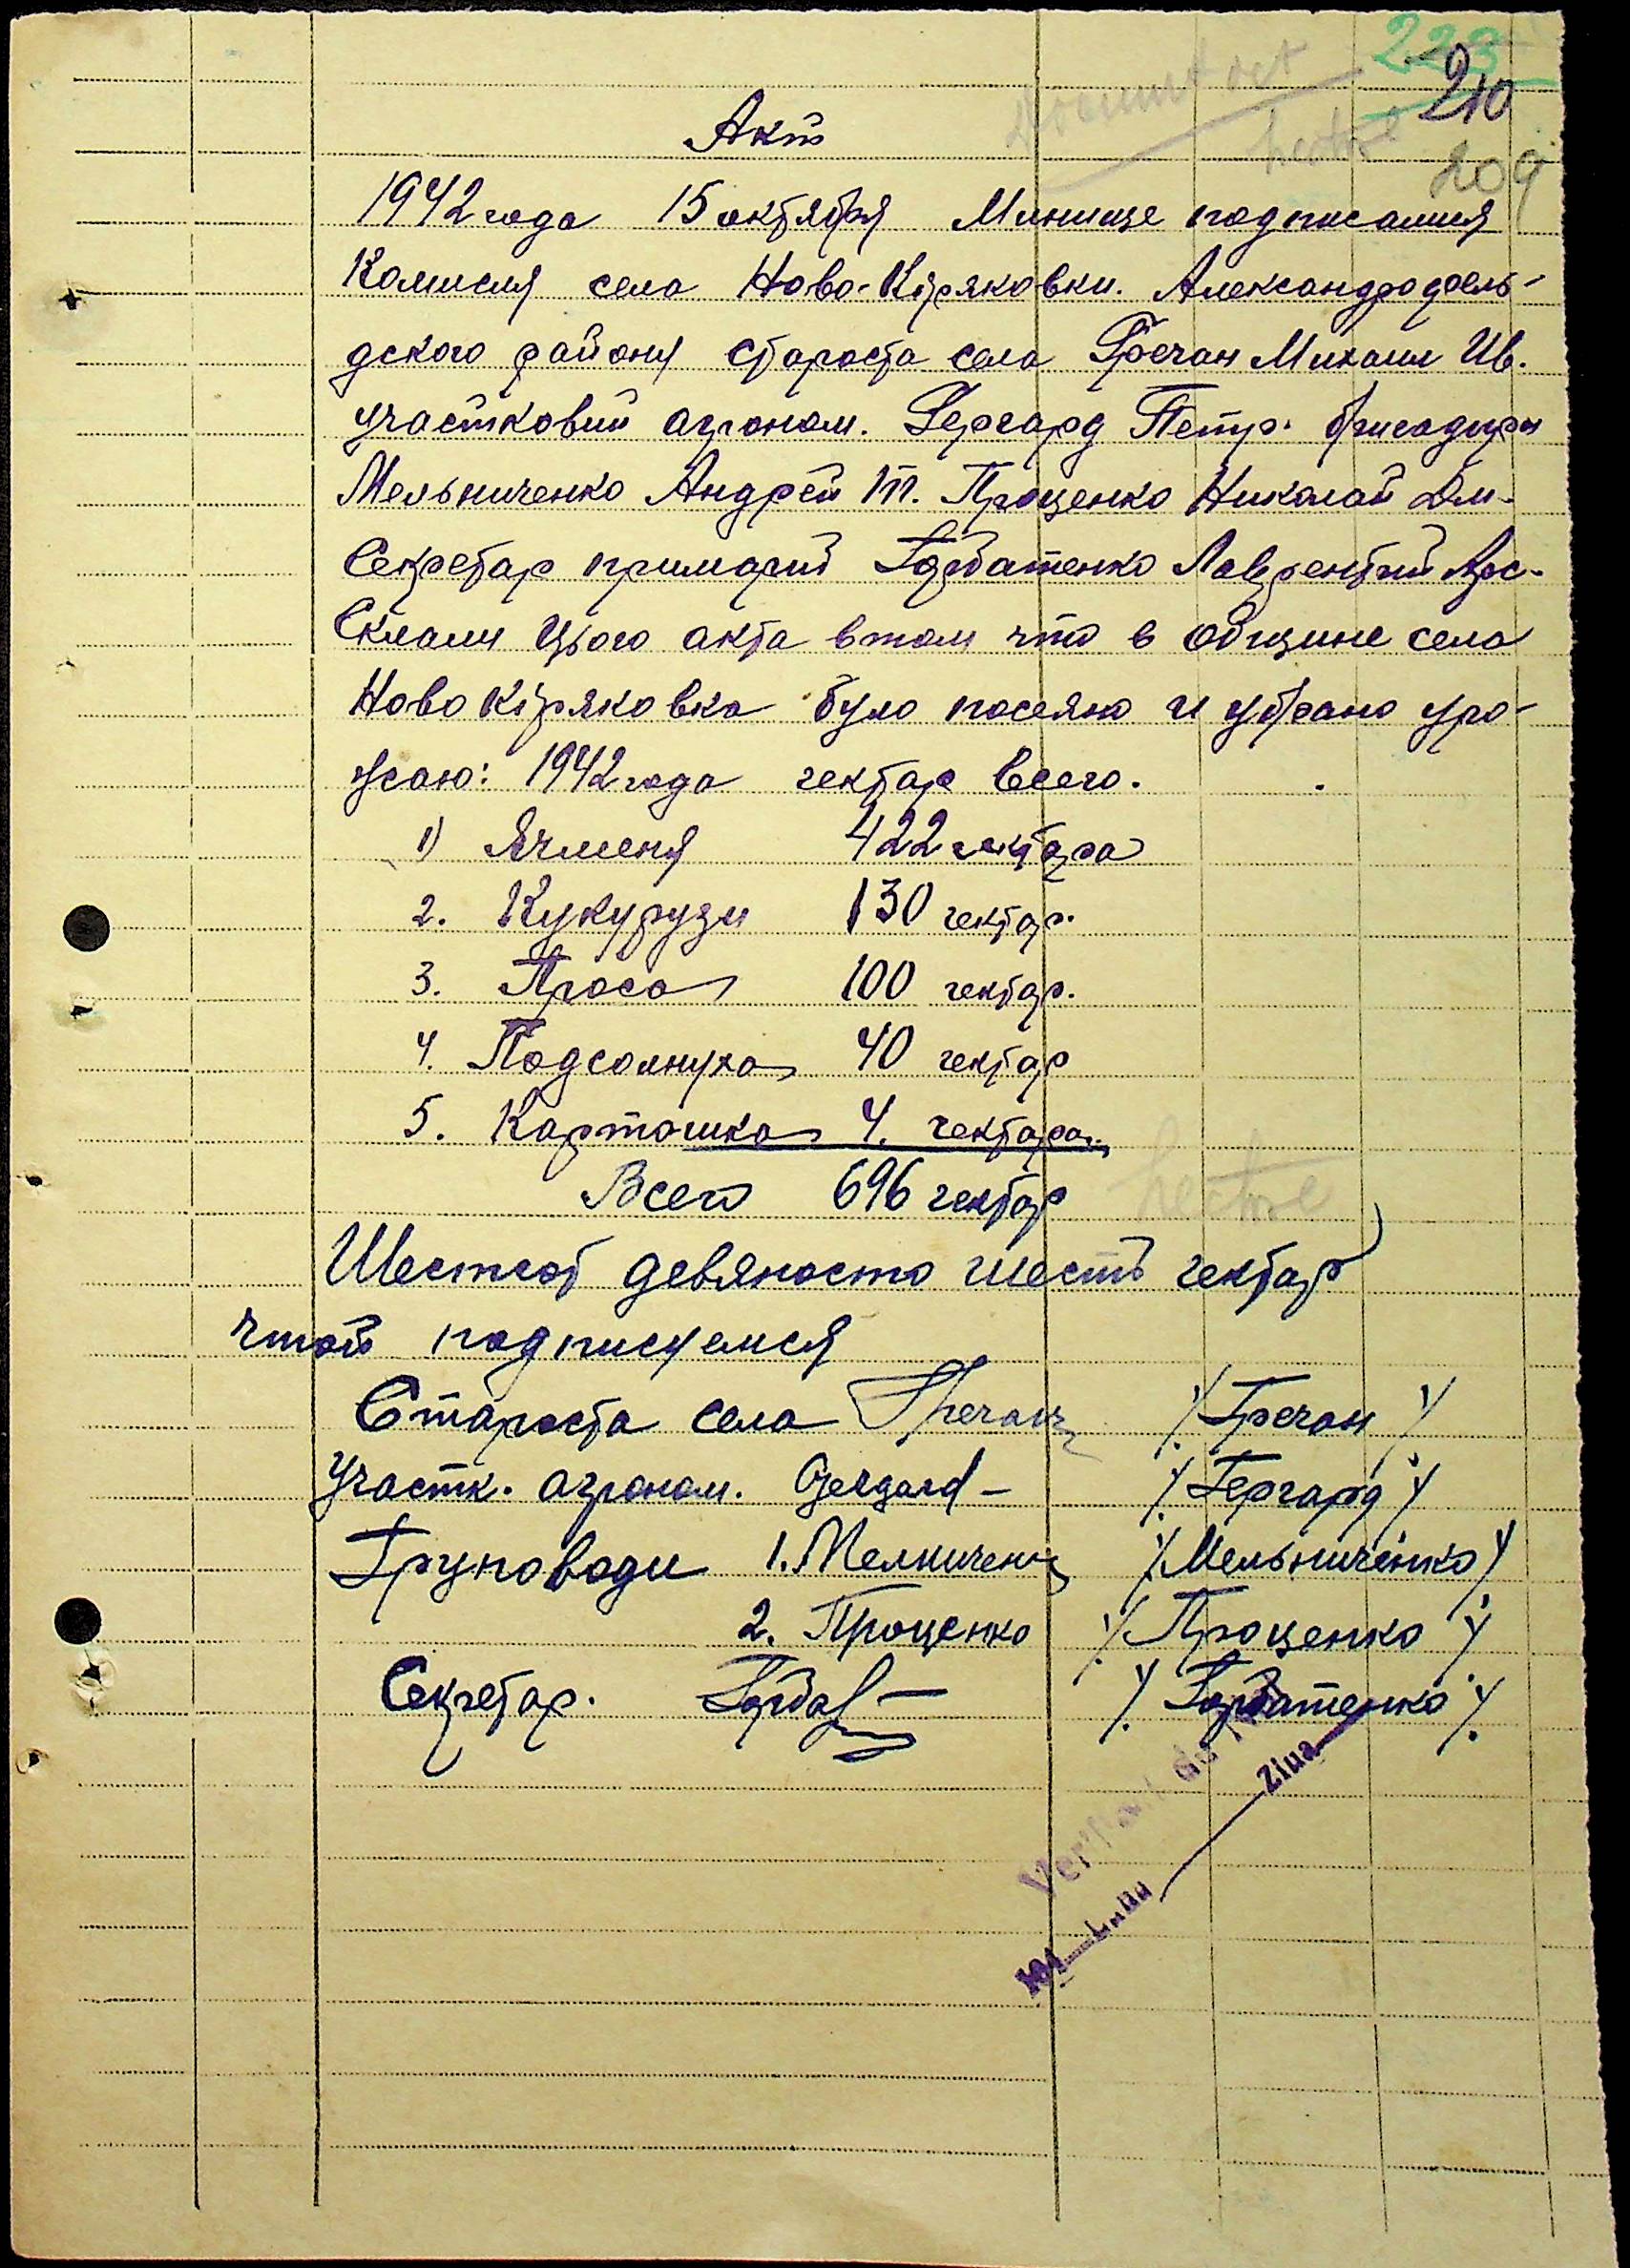 223
210
209
Акт
1942 года 15 октября Мынище подписаиия
Комисия село Ново-Кіряковки. Александродоель-
дского району староста села Гречан Михаил Ив.
участковий агроном. Гергард Петр. бригадири
Мельниченко Андрей Т. Проценко Николай Дм.
Секретар примарий Горбатенко Лаврентий Арс.
Склали цього акта втом что в общине села
Ново Кіряковка було посеяно и убрано уро-
жаю: 1942 года гектар всего.
1) Ячменя 422 гектара
2. Кукурузи 130 гектар.
3. Проса 100 гектар.
4. Подсолнуха 40 гектар
5. Картошка 4. гектара
Всего 696 гектар
Шестсот девяносто шесть гектар
подписуемся
Староста села Гречан /Гречан/
Участк. агроном. Gergard /Гергард/
Груповоди 1. Мелниченко /Мельниченко/
2. Проценко /Проценко/
Секретар. Горбат /Горбатенко/
Ziua